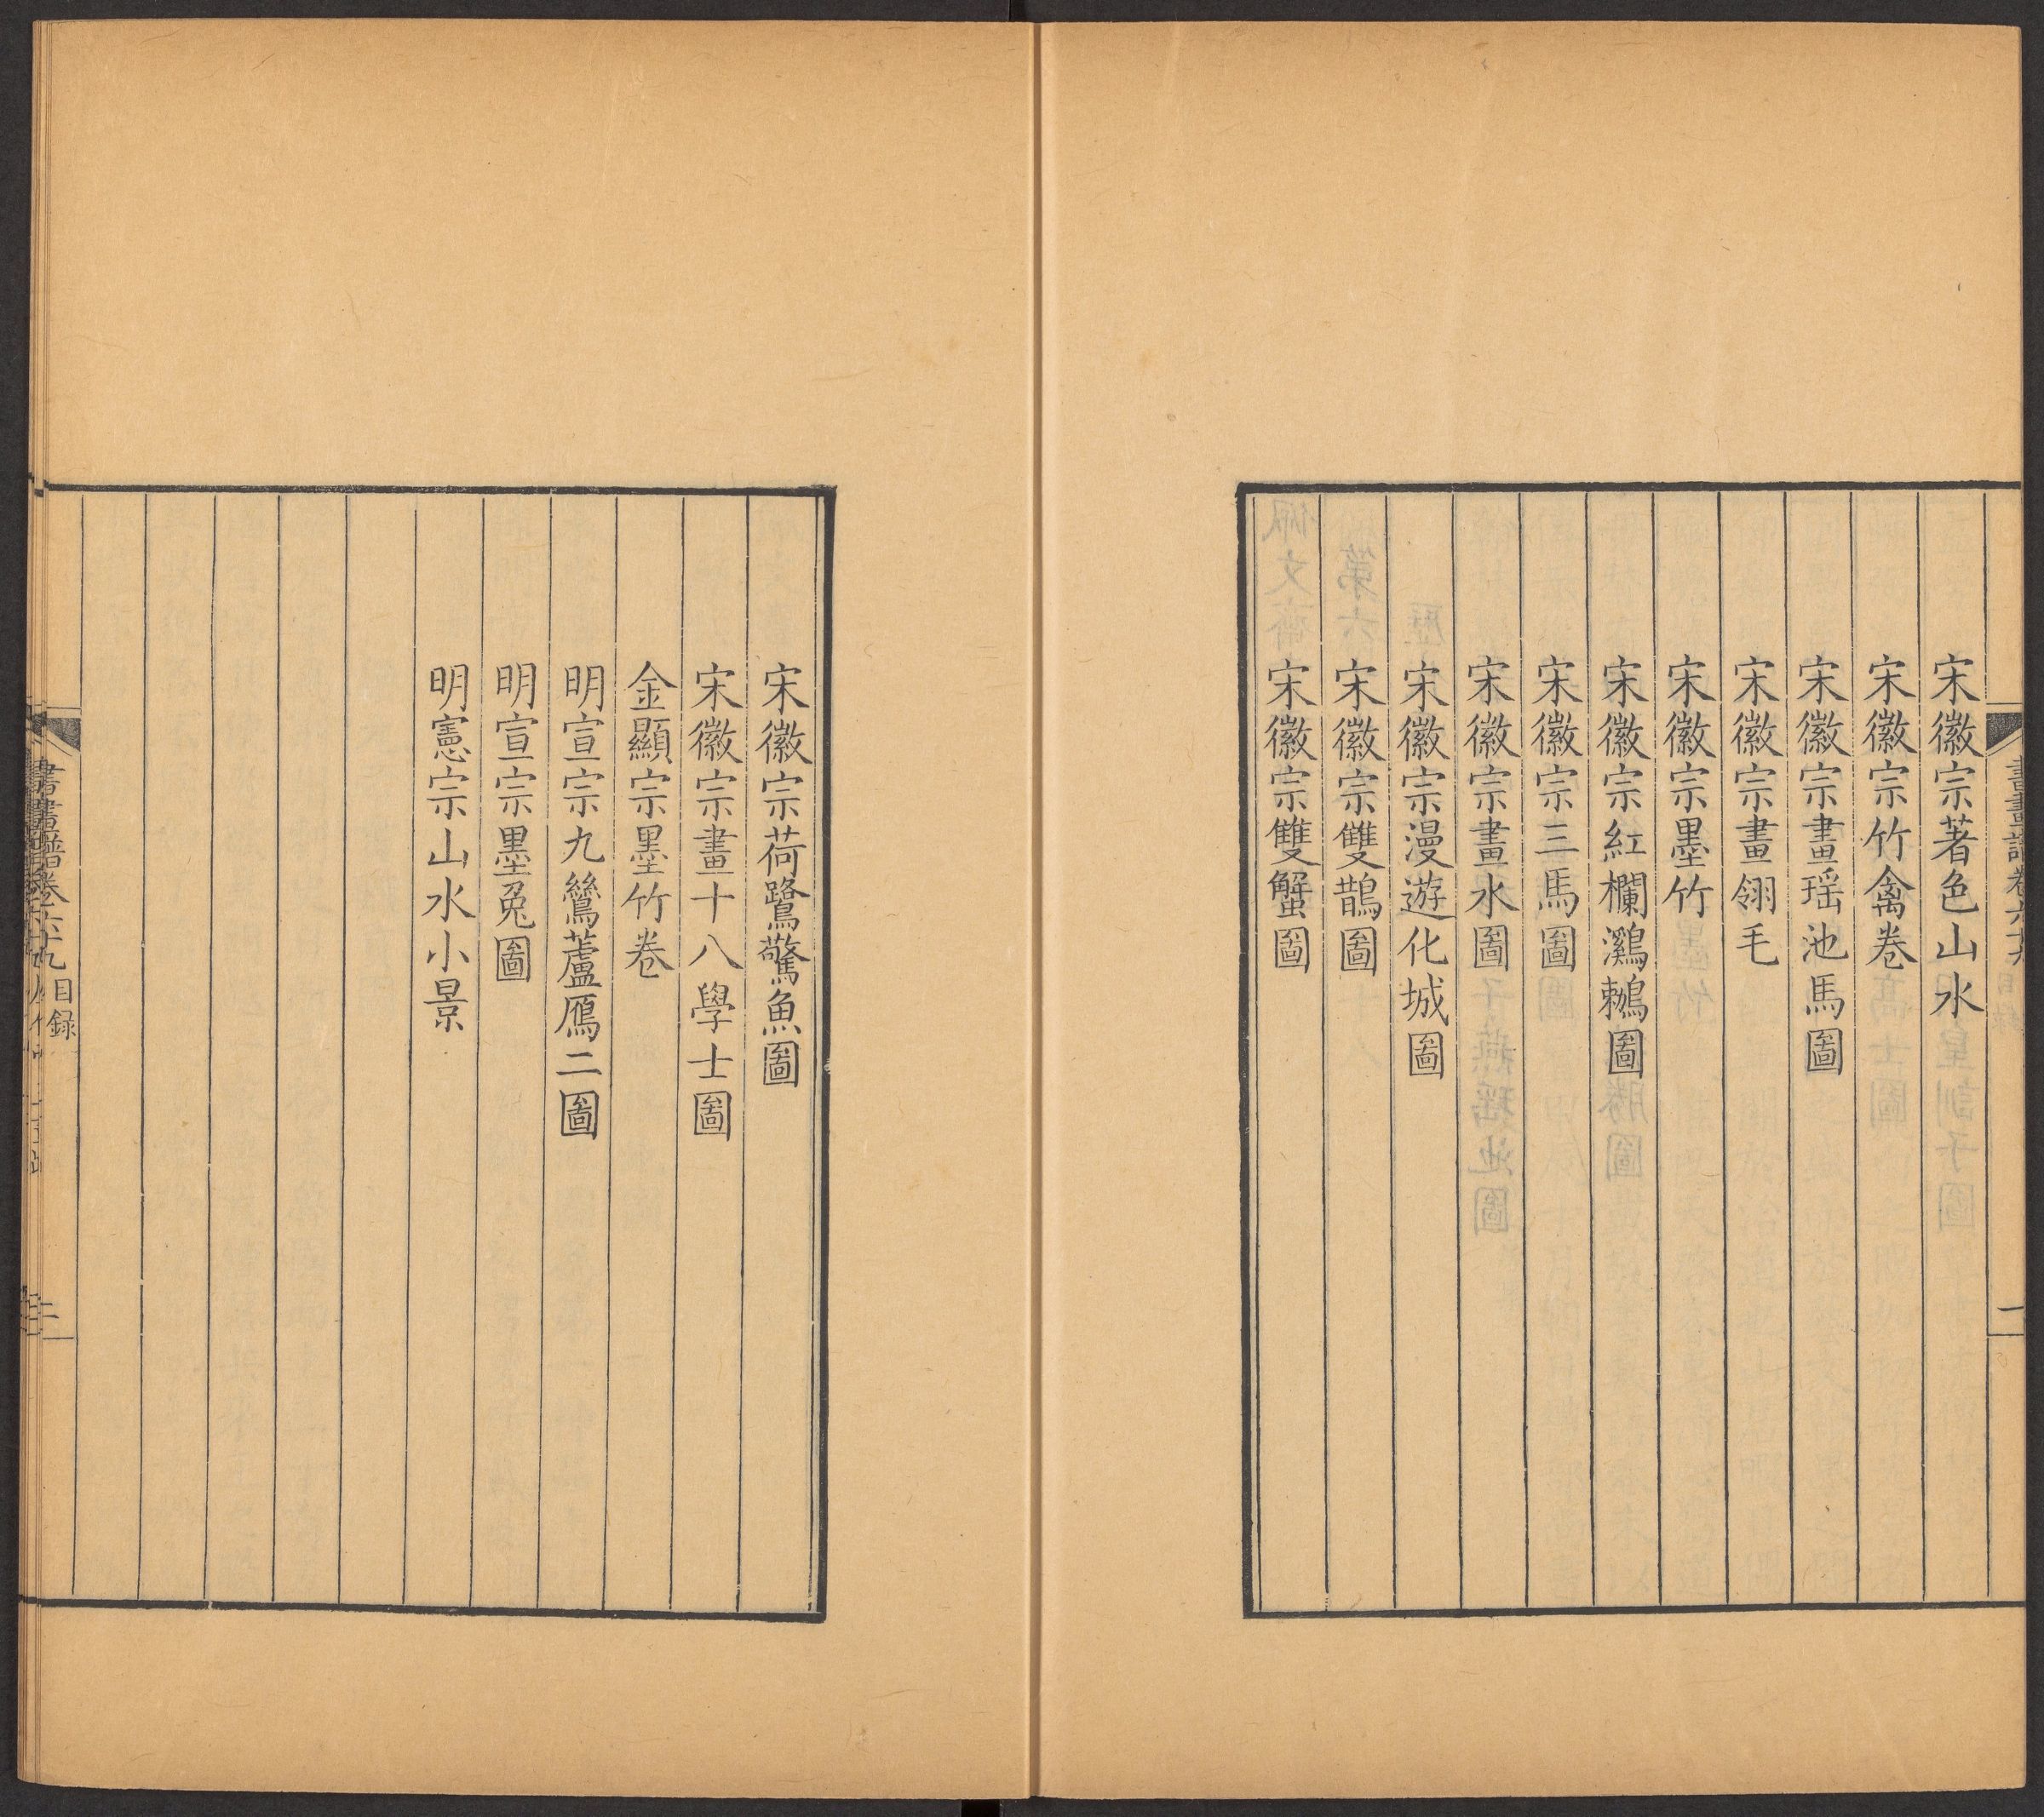 宋徽宗著色山水
宋徽宗竹禽卷
宋徽宗畫瑤池馬圖
宋徽宗畫翎毛
宋徽宗墨竹
宋徽宗紅欄鸂鶒圖
宋徽宗三馬圖
宋徽宗畫水圖
宋徽宗漫遊化城圖
宋徽宗雙鵲圖
宋徽宗雙蟹圖
宋徽宗荷鷺驚魚圖
宋徽宗畫十八學士圖
金顯宗墨竹卷
明宣宗九鷥蘆鴈二圖
明宣宗墨兔圖
明憲宗山水小景
書畫譜卷六十九 目録
二